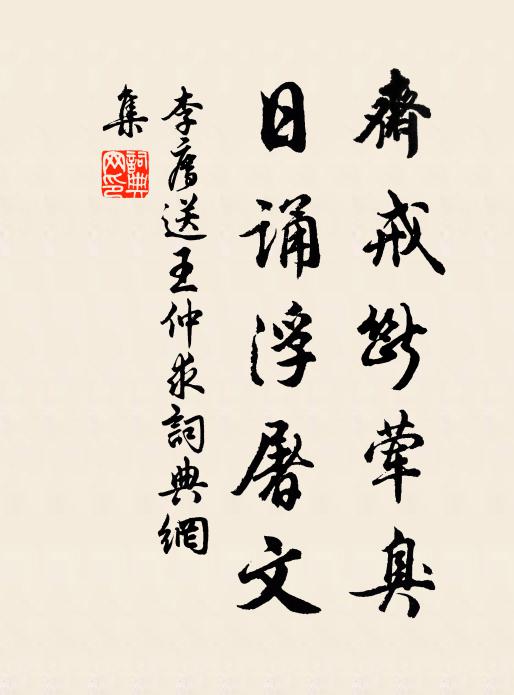 齋戒斷荤臭
日誦浮屠文
李廌送王仲求詞典網
集
詞典網印